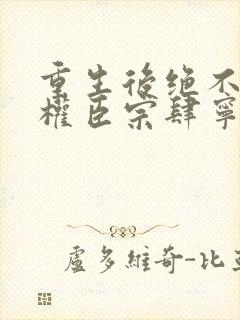 重生後绝不
權臣宗肆寧
盧多維奇-比亞